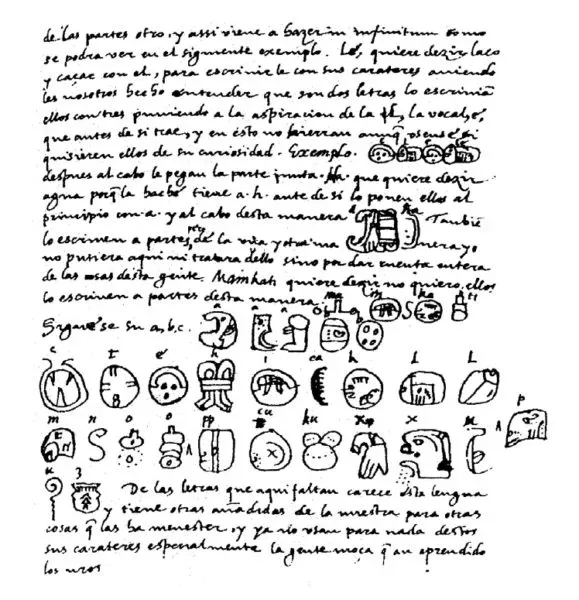 de las partes otro, y assi viene a hazer in infinitum como
se podra ver en el siguiente exemplo. Lé, quiere dezir laço
y caçar con el, para escrivirle con sus carateres aviendo
les nosotros hecho entender que son dos letras lo escrivian
ellos con tres puniendo a la aspiracion de la l, la vocal, é,
que antes de si trae, y en esto no hierran aunq̃ usense si
quisieren ellos de su curiosidad. Exemplo.
despues al cabo le pegan la parte junta. Ha. que quiere dezir
agua porq̃ la hachẽ tiene a. h. ante de si lo ponen ellos al
principio con a. y al cabo desta manera a ha Tambiẽ
lo escriven a partes, de la una y otra ma nera, yo
no pusiera aqui ni tratara dello sino por dar cuenta entera
de las cosas desta gente. Mainkati quiere dezir no quiero, ellos
lo escriven a partes desta manera. ma i n ka ti
Siguese su a, b, c. a a a b b
c t é h i ca k l L
m n o o pp cu ku x x u p
u z
De las letras que aqui faltan carece esta lengua
y tiene otras añadidas de la nuestra para otras
cosas q̃ las ha menester, y ya no usan para nada destos
sus carateres especialmente la gente moça q̃ an aprendido
los nros